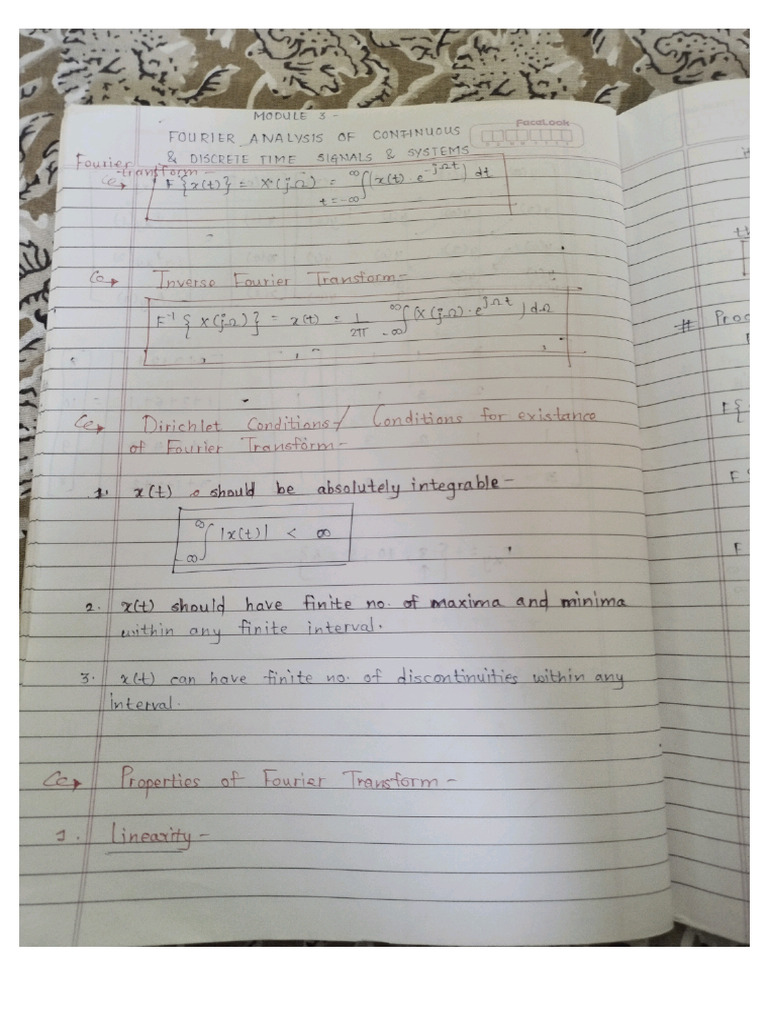 MODULE 3 -
FaceLook
FOURIER ANALYSIS OF CONTINUOUS
& DISCRETE TIME SIGNALS & SYSTEMS
Fourier
transform -
F{x(t)} = X(jΩ) = ∞∫t=-∞ (x(t) · e^-jΩt) dt
Inverse Fourier Transform -
F^-1 {X(jΩ)} = x(t) = 1/2π ∞∫-∞ (X(jΩ) · e^jΩt) dΩ
Dirichlet Conditions / Conditions for existance
of Fourier Transform -
1. x(t) should be absolutely integrable -
∞∫-∞ |x(t)| < ∞
2. x(t) should have finite no. of maxima and minima
within any finite interval.
3. x(t) can have finite no. of discontinuities within any
interval.
Properties of Fourier Transform -
1. Linearity -
# Proo
F{
F
F